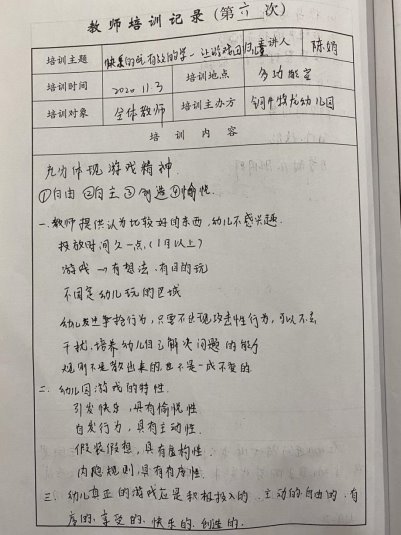 教师培训记录(第六次)
培训主题 快乐的玩有效的学—让游戏回归 主讲人 陈娟
培训时间 2020 11.3 培训地点 多功能室
培训对象 全体教师 培训主办方 幼儿园
培 训 内 容
充分体现游戏精神
①自由 ②自主 ③创造 ④愉悦.
一.教师提供认为比较好的东西,幼儿不感兴趣.
投放时间久一点.(1月以上)
游戏→有想法、有目的玩
不固定幼儿玩的区域
幼儿发生争抢行为,只要不出现攻击性行为,可以不去
干扰.培养幼儿自己解决问题的能力
规则不是教出来的.也不是一成不变的
二.幼儿园游戏的特性.
引发快乐,具有愉悦性
自发行为,具有主动性.
假装假想,具有虚构性
内隐规则,具有有序性.
三.幼儿真正的游戏应是积极投入的、主动的.自由的.有
序的.享受的.快乐的.创造的.